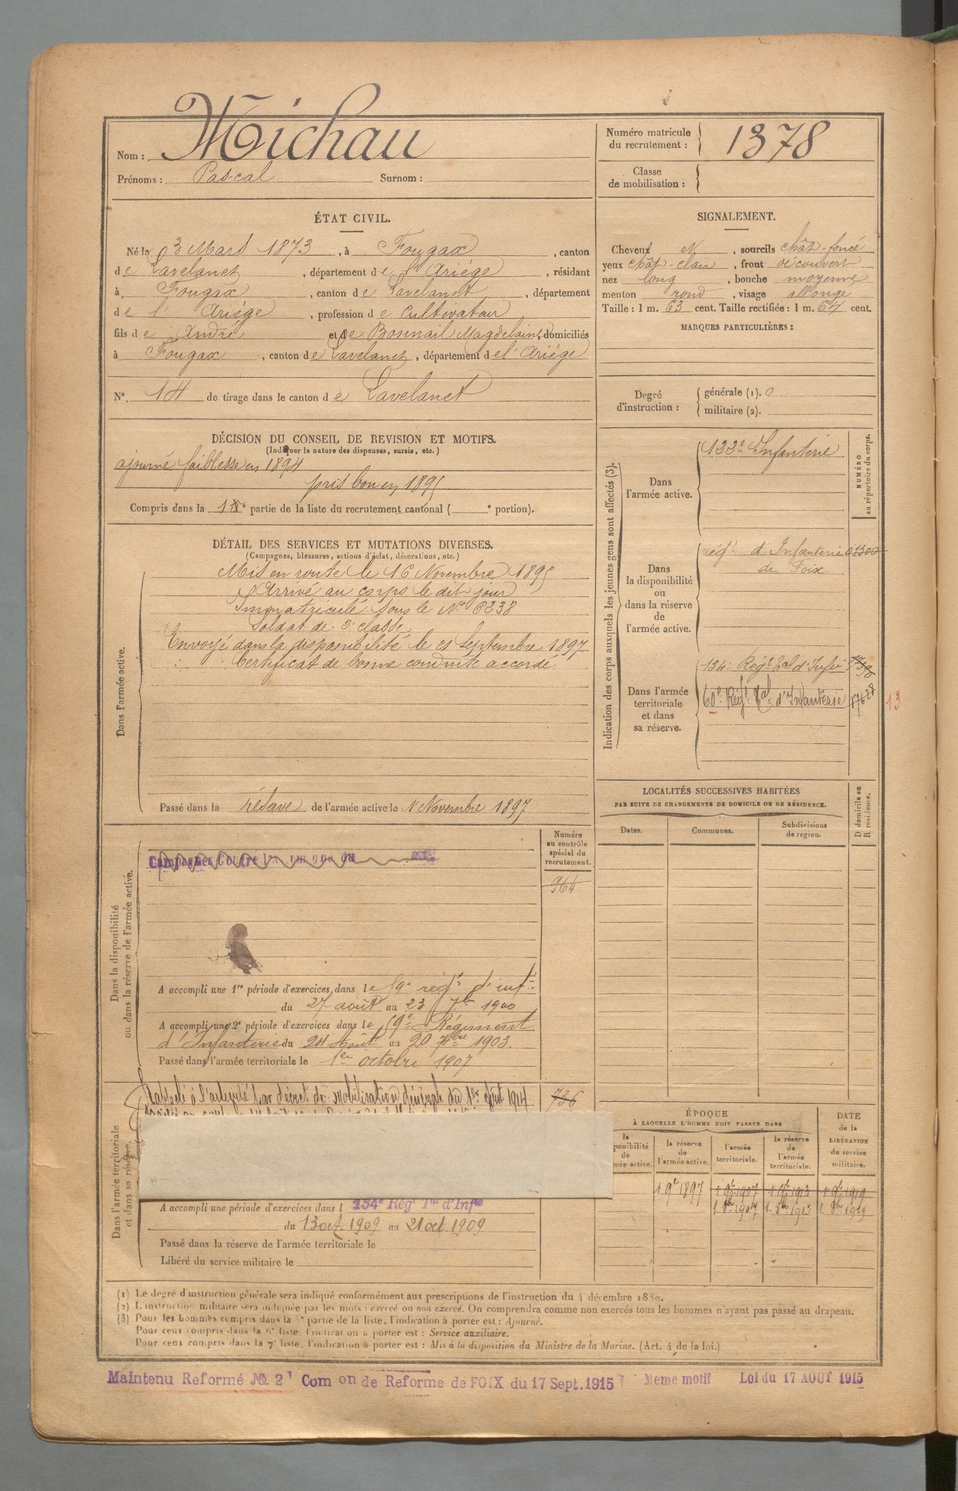 Nom : Michau
Prénoms : Pascal Surnom :
Numéro matricule du recrutement : 1378
Classe de mobilisation :
ÉTAT CIVIL.
Né le 3 Mars 1873, à Fougax, canton
de Lavelanet, département de l'Ariége, résidant
à Fougax, canton de Lavelanet, département
de l'Ariége, profession de Cultivateur
fils de André et de Bonnail Magdelaine, domiciliés
à Fougax, canton de Lavelanet, département de l'Ariége
N° 14 de tirage dans le canton de Lavelanet
SIGNALEMENT.
Cheveux N, sourcils chât-foncé
yeux chât-clair, front découvert
nez long, bouche moyenne
menton rond, visage allongé
Taille : 1 m. 63 cent. Taille rectifiée : 1 m. 64 cent.
MARQUES PARTICULIÈRES :
Degré d'instruction : générale (1). 0
militaire (2).
DÉCISION DU CONSEIL DE REVISION ET MOTIFS.
(Indiquer la nature des dispenses, sursis, etc.)
ajourné faiblesse en 1894
pris bon en 1895
Compris dans la partie de la liste du recrutement cantonal ( portion).
DÉTAIL DES SERVICES ET MUTATIONS DIVERSES.
(Campagnes, blessures, actions d'éclat, décorations, etc.)
Dans l'armée active.
Mis en route le 16 Novembre 1895
Arrivé au corps le dit jour
Immatriculé sous le N° 6238
Soldat de 2e classe
Envoyé dans la disponibilité le 21 Septembre 1897
Certificat de bonne conduite accordé
Passé dans la réserve de l'armée active le 1 Novembre 1897
Indication des corps auxquels les jeunes gens sont affectés (3).
NUMÉRO au répertoire du corps.
Dans l'armée active.
Infanterie
Dans la disponibilité ou dans la réserve de l'armée active.
régt d'Infanterie
de Foix
Dans l'armée territoriale et dans sa réserve.
134e Régt tal d'Infie
60e Régt tal d'Infanterie
13
LOCALITÉS SUCCESSIVES HABITÉES
PAR SUITE DE CHANGEMENTS DE DOMICILE OU DE RÉSIDENCE.
Dates. Communes. Subdivisions de région. D domicile ou R résidence.
Dans la disponibilité ou dans la réserve de l'armée active.
Numéro au contrôle spécial du recrutement.
964
A accompli une 1re période d'exercices dans le 59e régt d'inf
du 27 août au 23 7bre 1900
A accompli une 2e période d'exercices dans le 59e Régiment
d'Infanterie du 24 Août au 20 7bre 1903.
Passé dans l'armée territoriale le 1er octobre 1907
Dans l'armée territoriale et dans sa réserve.
Rappelé à l'activité par décret de mobilisation Générale du 1er Août 1914
736
A accompli une période d'exercices dans l 134e Régt Tal d'Infie
du 13 oct 1909 au 21 oct 1909
Passé dans la réserve de l'armée territoriale le
Libéré du service militaire le
ÉPOQUE
À LAQUELLE L'HOMME DOIT PASSER DANS
la réserve de l'armée active. l'armée territoriale. la réserve de l'armée territoriale.
DATE de la LIBÉRATION du service militaire.
(1) Le degré d'instruction générale sera indiqué conformément aux prescriptions de l'instruction du 4 décembre 1889.
(2) L'instruction militaire sera indiquée par les mots : exercé ou non exercé. On comprendra comme non exercés tous les hommes n'ayant pas passé au drapeau.
(3) Pour les hommes compris dans la partie de la liste, l'indication à porter est : Ajourné.
Pour ceux compris dans la liste, l'indication à porter est : Service auxiliaire.
Pour ceux compris dans la 7e liste, l'indication à porter est : Mis à la disposition du Ministre de la Marine. (Art. 4 de la loi.)
Maintenu Reformé No. 2 Com on de Reforme de FOIX du 17 Sept. 1915 Meme motif Loi du 17 AOUT 1915